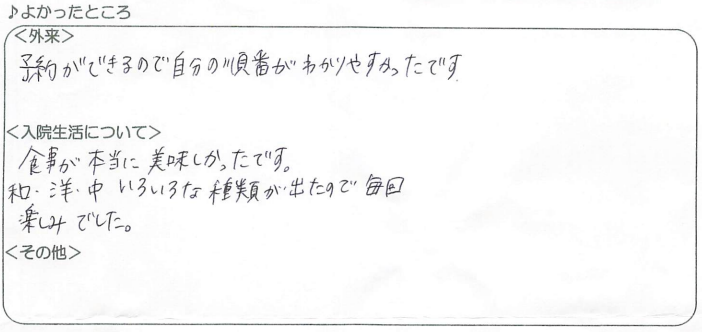 ♪よかったところ
＜外来＞
予約ができるので自分の順番がわかりやすかったです
＜入院生活について＞
食事が本当に美味しかったです。
和・洋・中 いろいろな種類が出たので毎回
楽しみでした。
＜その他＞